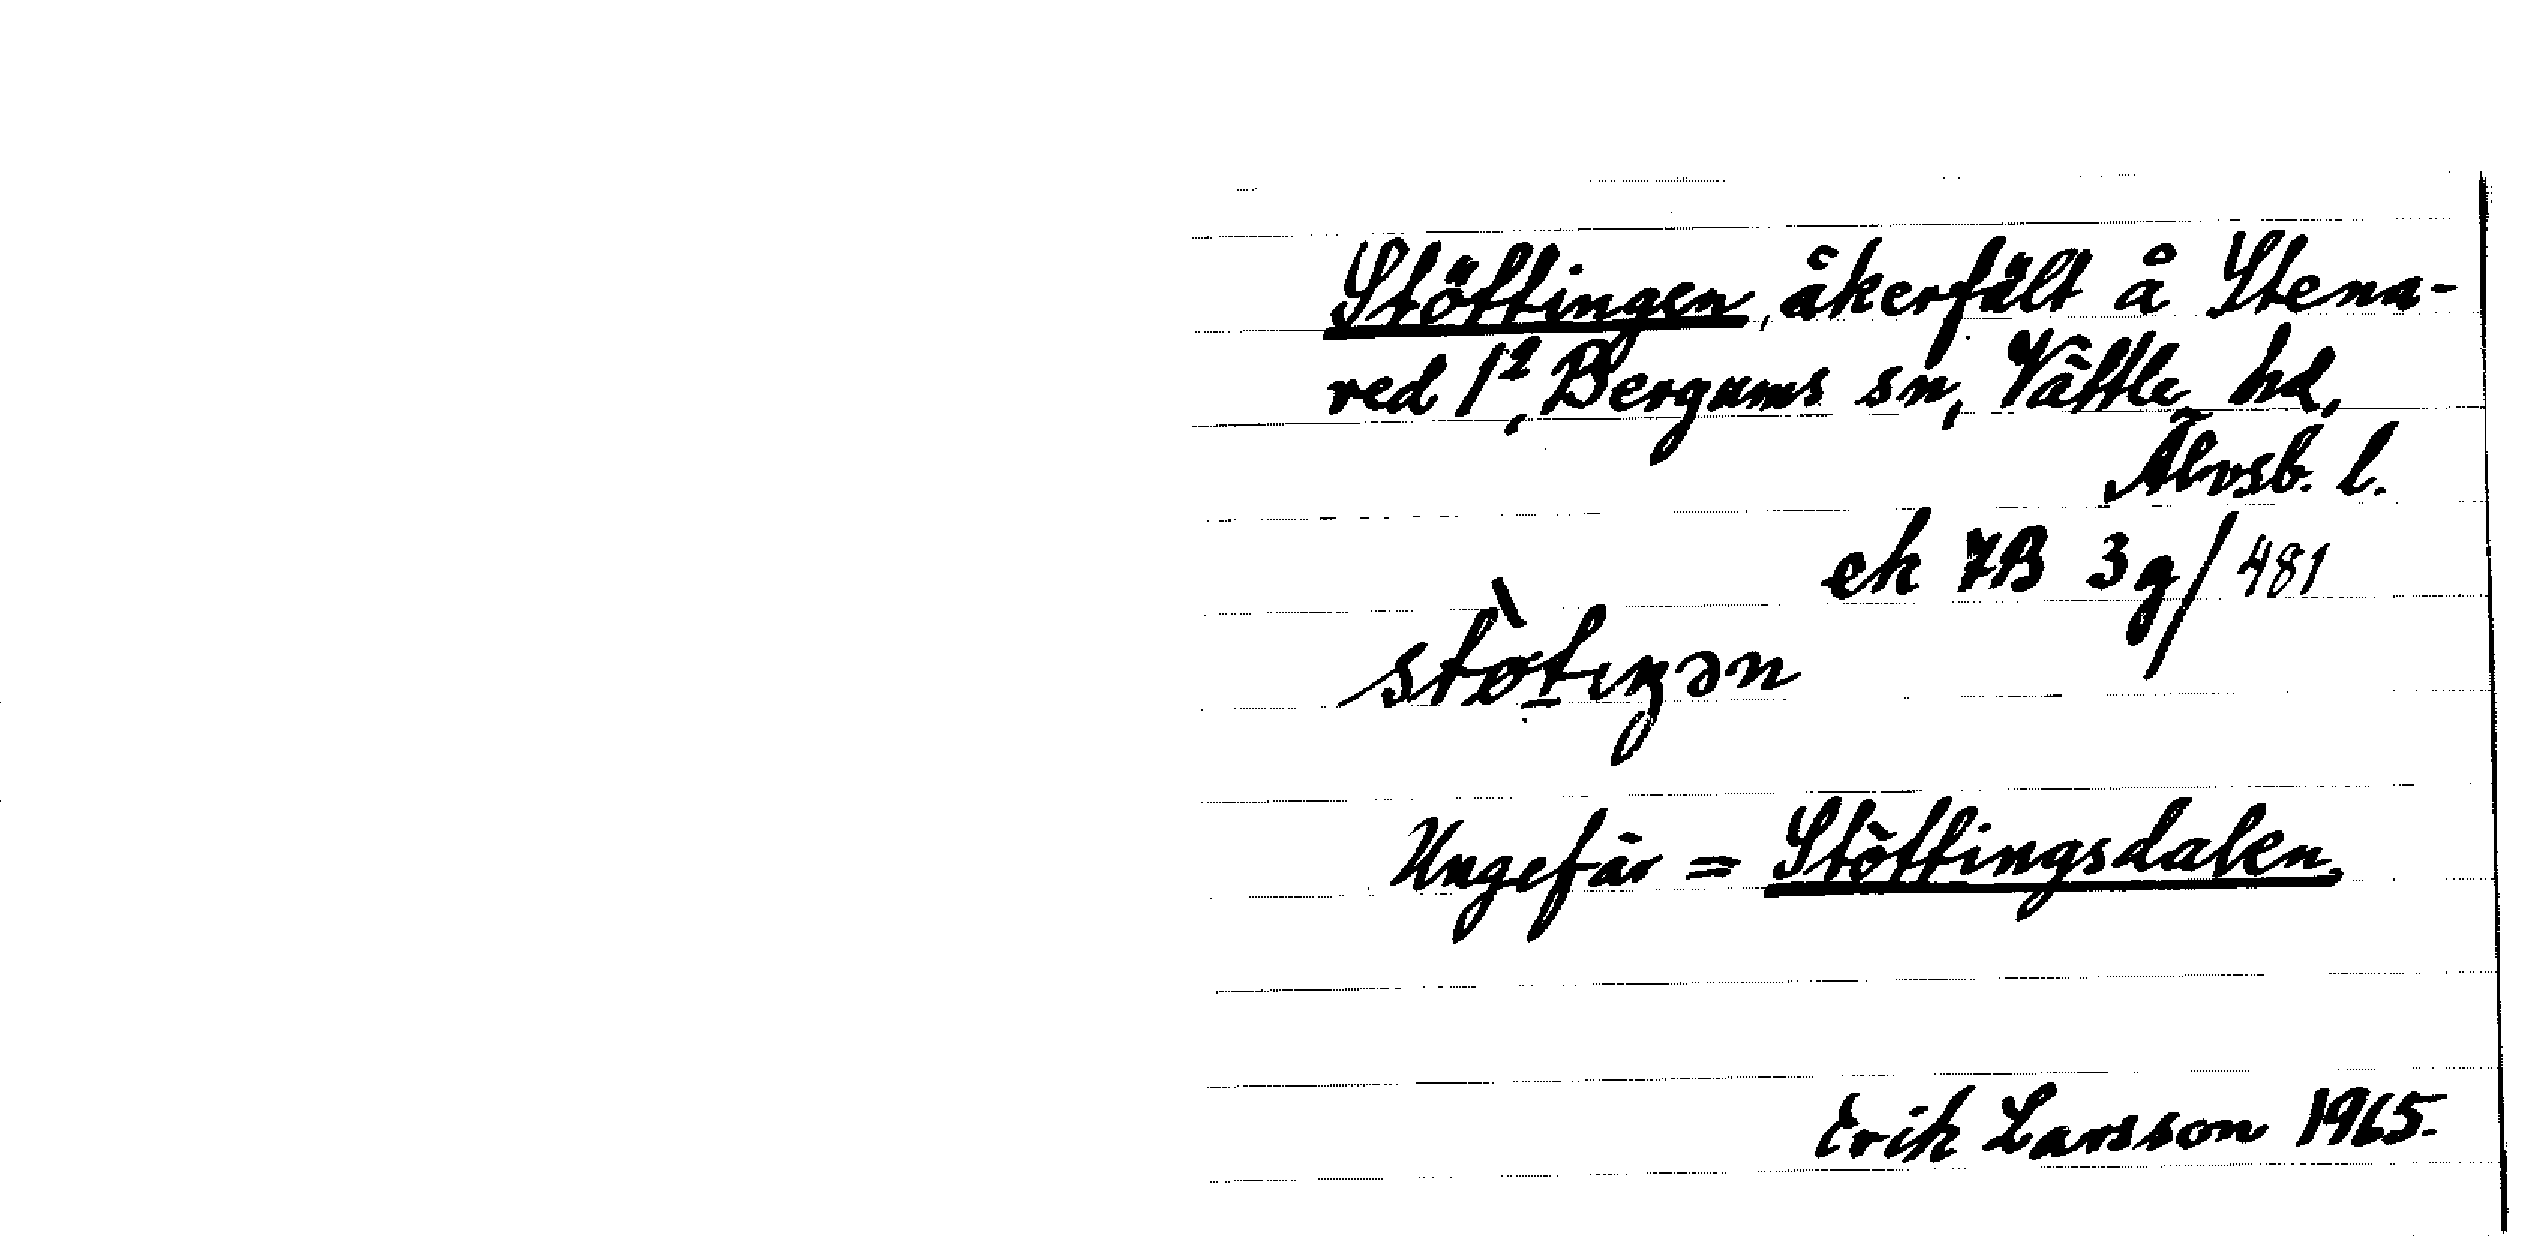 Stöttingen, åkerfält å Stena-
red 1², Bergums sn, Vättle hd,
Älvsb. l.
ek 7B 3g/481
stø̀t̲ıŋən
Ungefär = Stöttingsdalen.
Erik Larsson 1965.